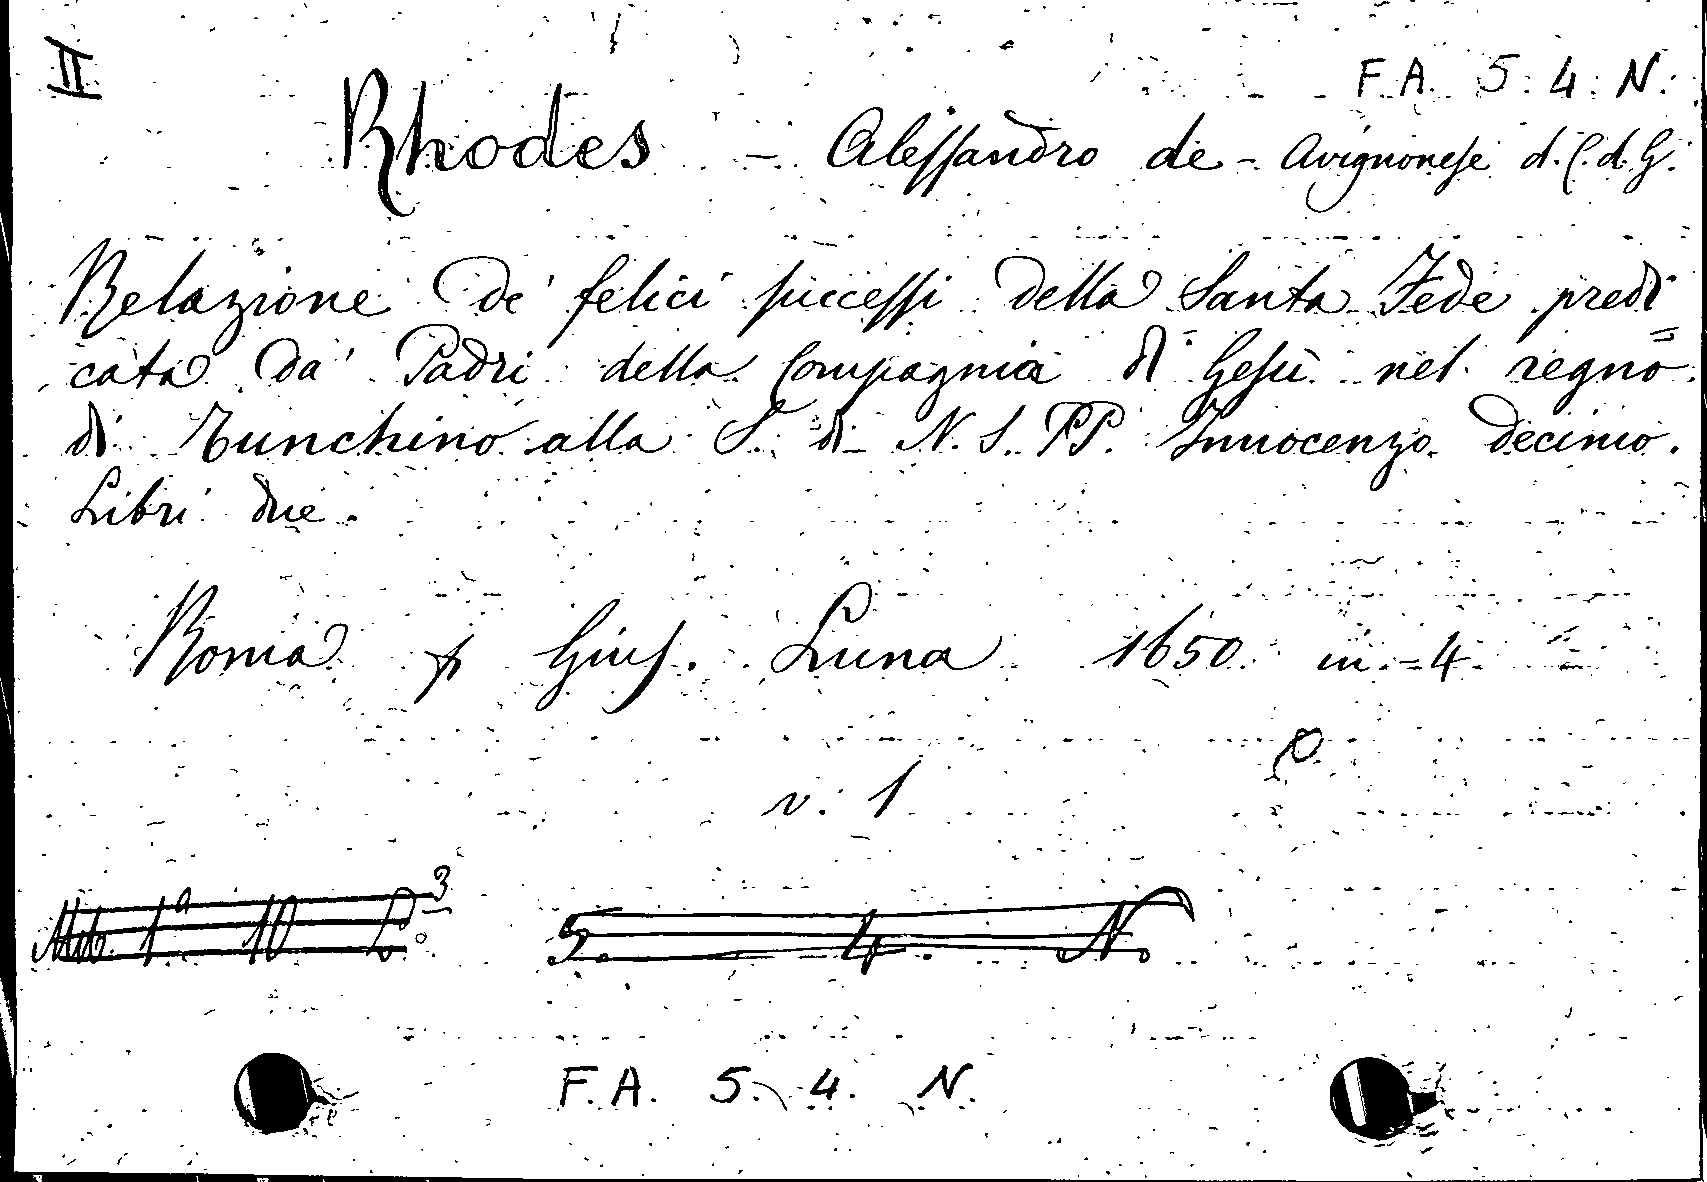 II
F. A. 5. 4. N.
Rhodes - Alessandro de - Avignonese d. C. d. G.
Relazione de' felici successi della Santa Fede predi
cata da' Padri della Compagnia di Gesù nel regno
di Tunchino alla S. di N. S. PP. Innocenzo decimo.
Libri due.
Roma p Gius. Luna 1650 in-4
v. 1
5. 4. N.
F. A. 5. 4. N.